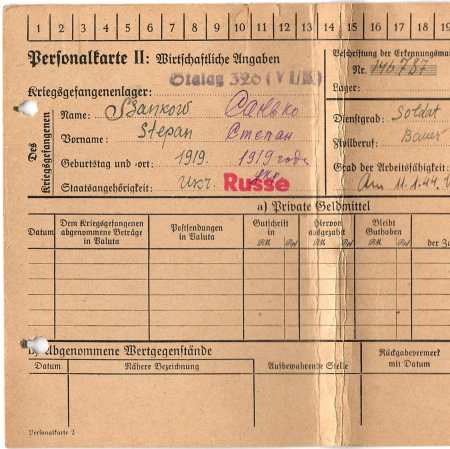 1 2 3 4 5 6 7 8 9 10 11 12 13 14 15 16 17 18 19
Personalkarte II: Wirtschaftliche Angaben
Beschriftung der Erkennungsmar
Stalag 326 (VI/K)
Nr. 146787
Kriegsgefangenenlager:
Lager:
Des Kriegsgefangenen
Name: Sankow Санько
Dienstgrad: Soldat
Vorname: Stepan Степан
Zivilberuf: Bauer
Geburtstag und -ort: 1919. 1919 года
Grad der Arbeitsfähigkeit:
Staatsangehörigkeit: ukr. Russe
Am 11.1.44.
a) Private Geldmittel
Datum
Dem Kriegsgefangenen abgenommene Beträge in Valuta
Postsendungen in Valuta
Gutschrift in
RM Rpf
Hiervon ausgezahlt
RM Rpf
Bleibt Guthaben
RM Rpf
der Za
b) Abgenommene Wertgegenstände
Datum
Nähere Bezeichnung
Aufbewahrende Stelle
Rückgabevermerk mit Datum
Personalkarte 2